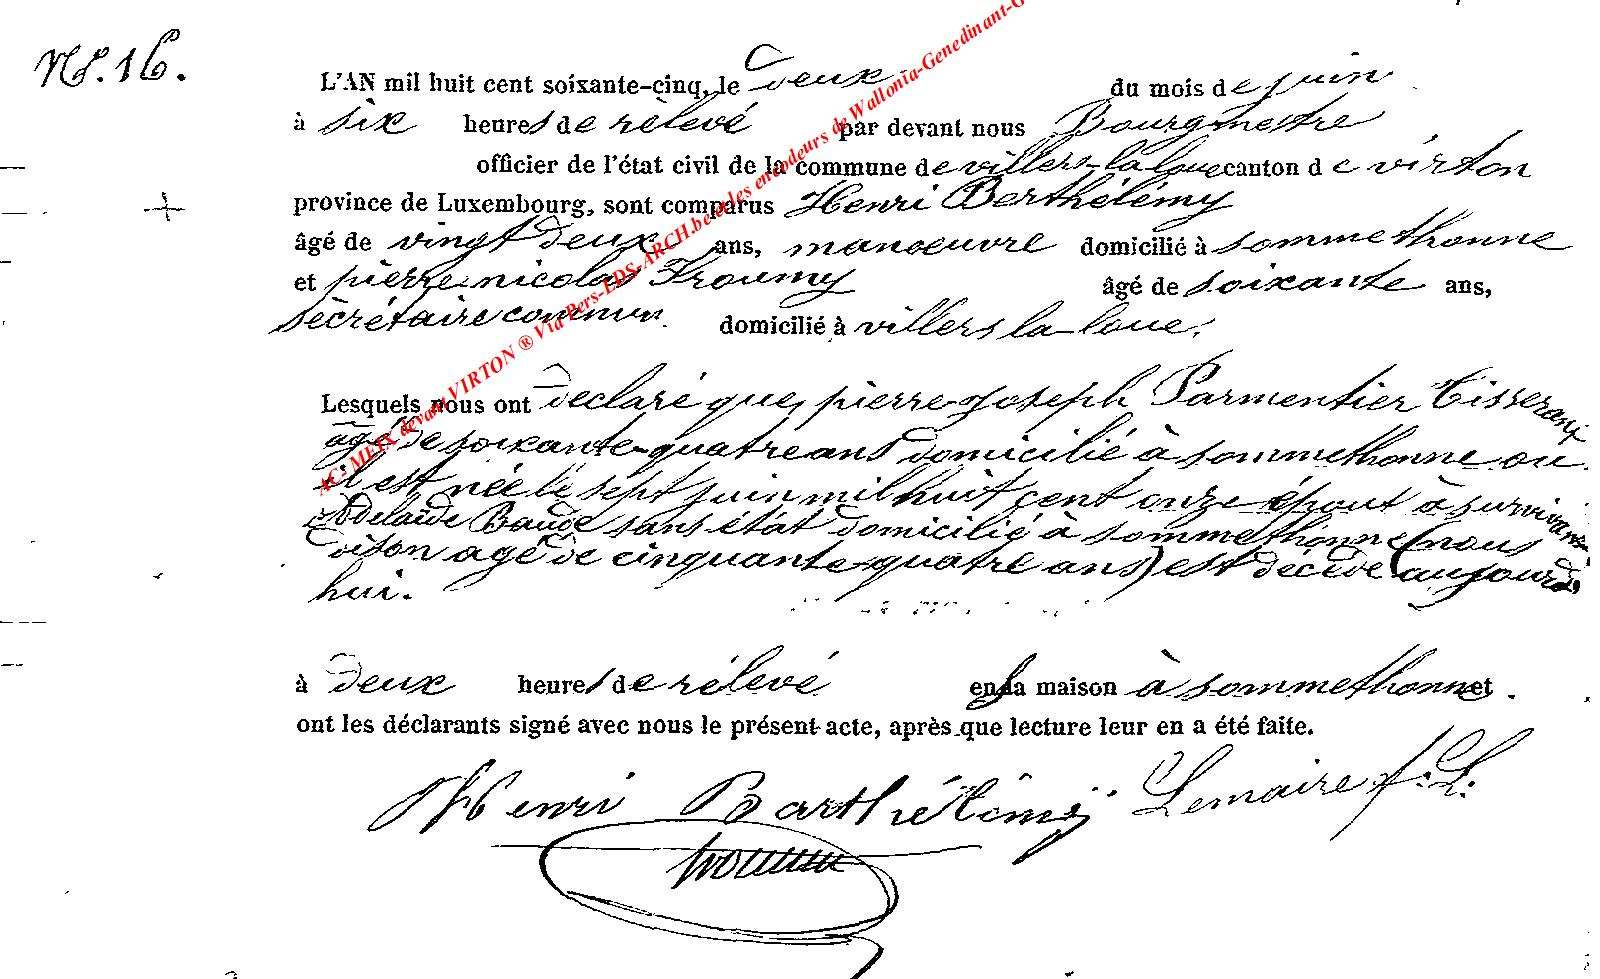 N°. 16.
L'AN mil huit cent soixante-cinq, le deux du mois de juin
à six heures de rélevé par devant nous Bourgmestre
officier de l'état civil de la commune de villers-la-loue canton de virton
province de Luxembourg, sont comparus Henri Berthélémy
âgé de vingt deux ans, manoeuvre domicilié à sommethonne
et pierre nicolas Froumy âgé de soixante ans,
secrétaire commun. domicilié à villers la loue.
Lesquels nous ont declaré que, pierre-Joseph Parmentier Tisserand
âgé de soixante-quatre ans domicilié à sommethonne ou
il est née le sept juin mil huit cent onze époux à survivante
Adelaïde Baudé sans état domicilié à sommethonne (nous
disons agé de cinquante-quatre ans) est décédé aujourd
hui.
à deux heures de rélevé en sa maison à sommethonne et
ont les déclarants signé avec nous le présent acte, après que lecture leur en a été faite.
Henri Barthélémy Lemaire f. L.
AC: MEIX devant VIRTON ® Via Pers-LDS-ARCH.be et les encodeurs de Wallonia-Genedinant-G